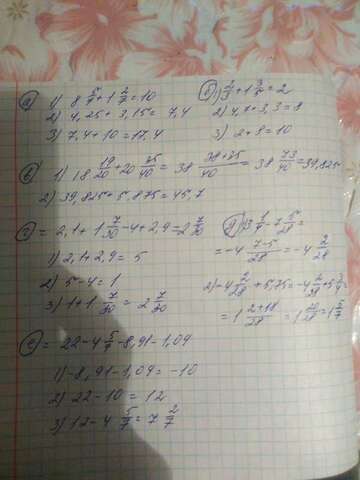 а) 1) 8 5/7 + 1 2/7 = 10
2) 4,25 + 3,15 = 7,4
3) 7,4 + 10 = 17,4
2) 4,7 + 3,3 = 8
3) 2 + 8 = 10
в) 1) 18 19/20 + 20 35/40 = 38 38+35/40 = 38 73/40 = 39,825
2) 39,825 + 5,875 = 45,7
г) = 2,1 + 1 7/30 - 4 + 2,9 = 2 7/30
1) 2,1 + 2,9 = 5
2) 5 - 4 = 1
3) 1 + 1 7/30 = 2 7/30
д) 3 1/4 - 7 5/28 =
= -4 7-5/28 = -4 2/28
2) -4 2/28 + 5,75 = -4 2/28 + 5 3/4
= 1 2+18/28 = 1 20/28 = 1 5/7
е) = 22 - 4 5/7 - 8,91 - 1,09
1) -8,91 - 1,09 = -10
2) 22 - 10 = 12
3) 12 - 4 5/7 = 7 2/7